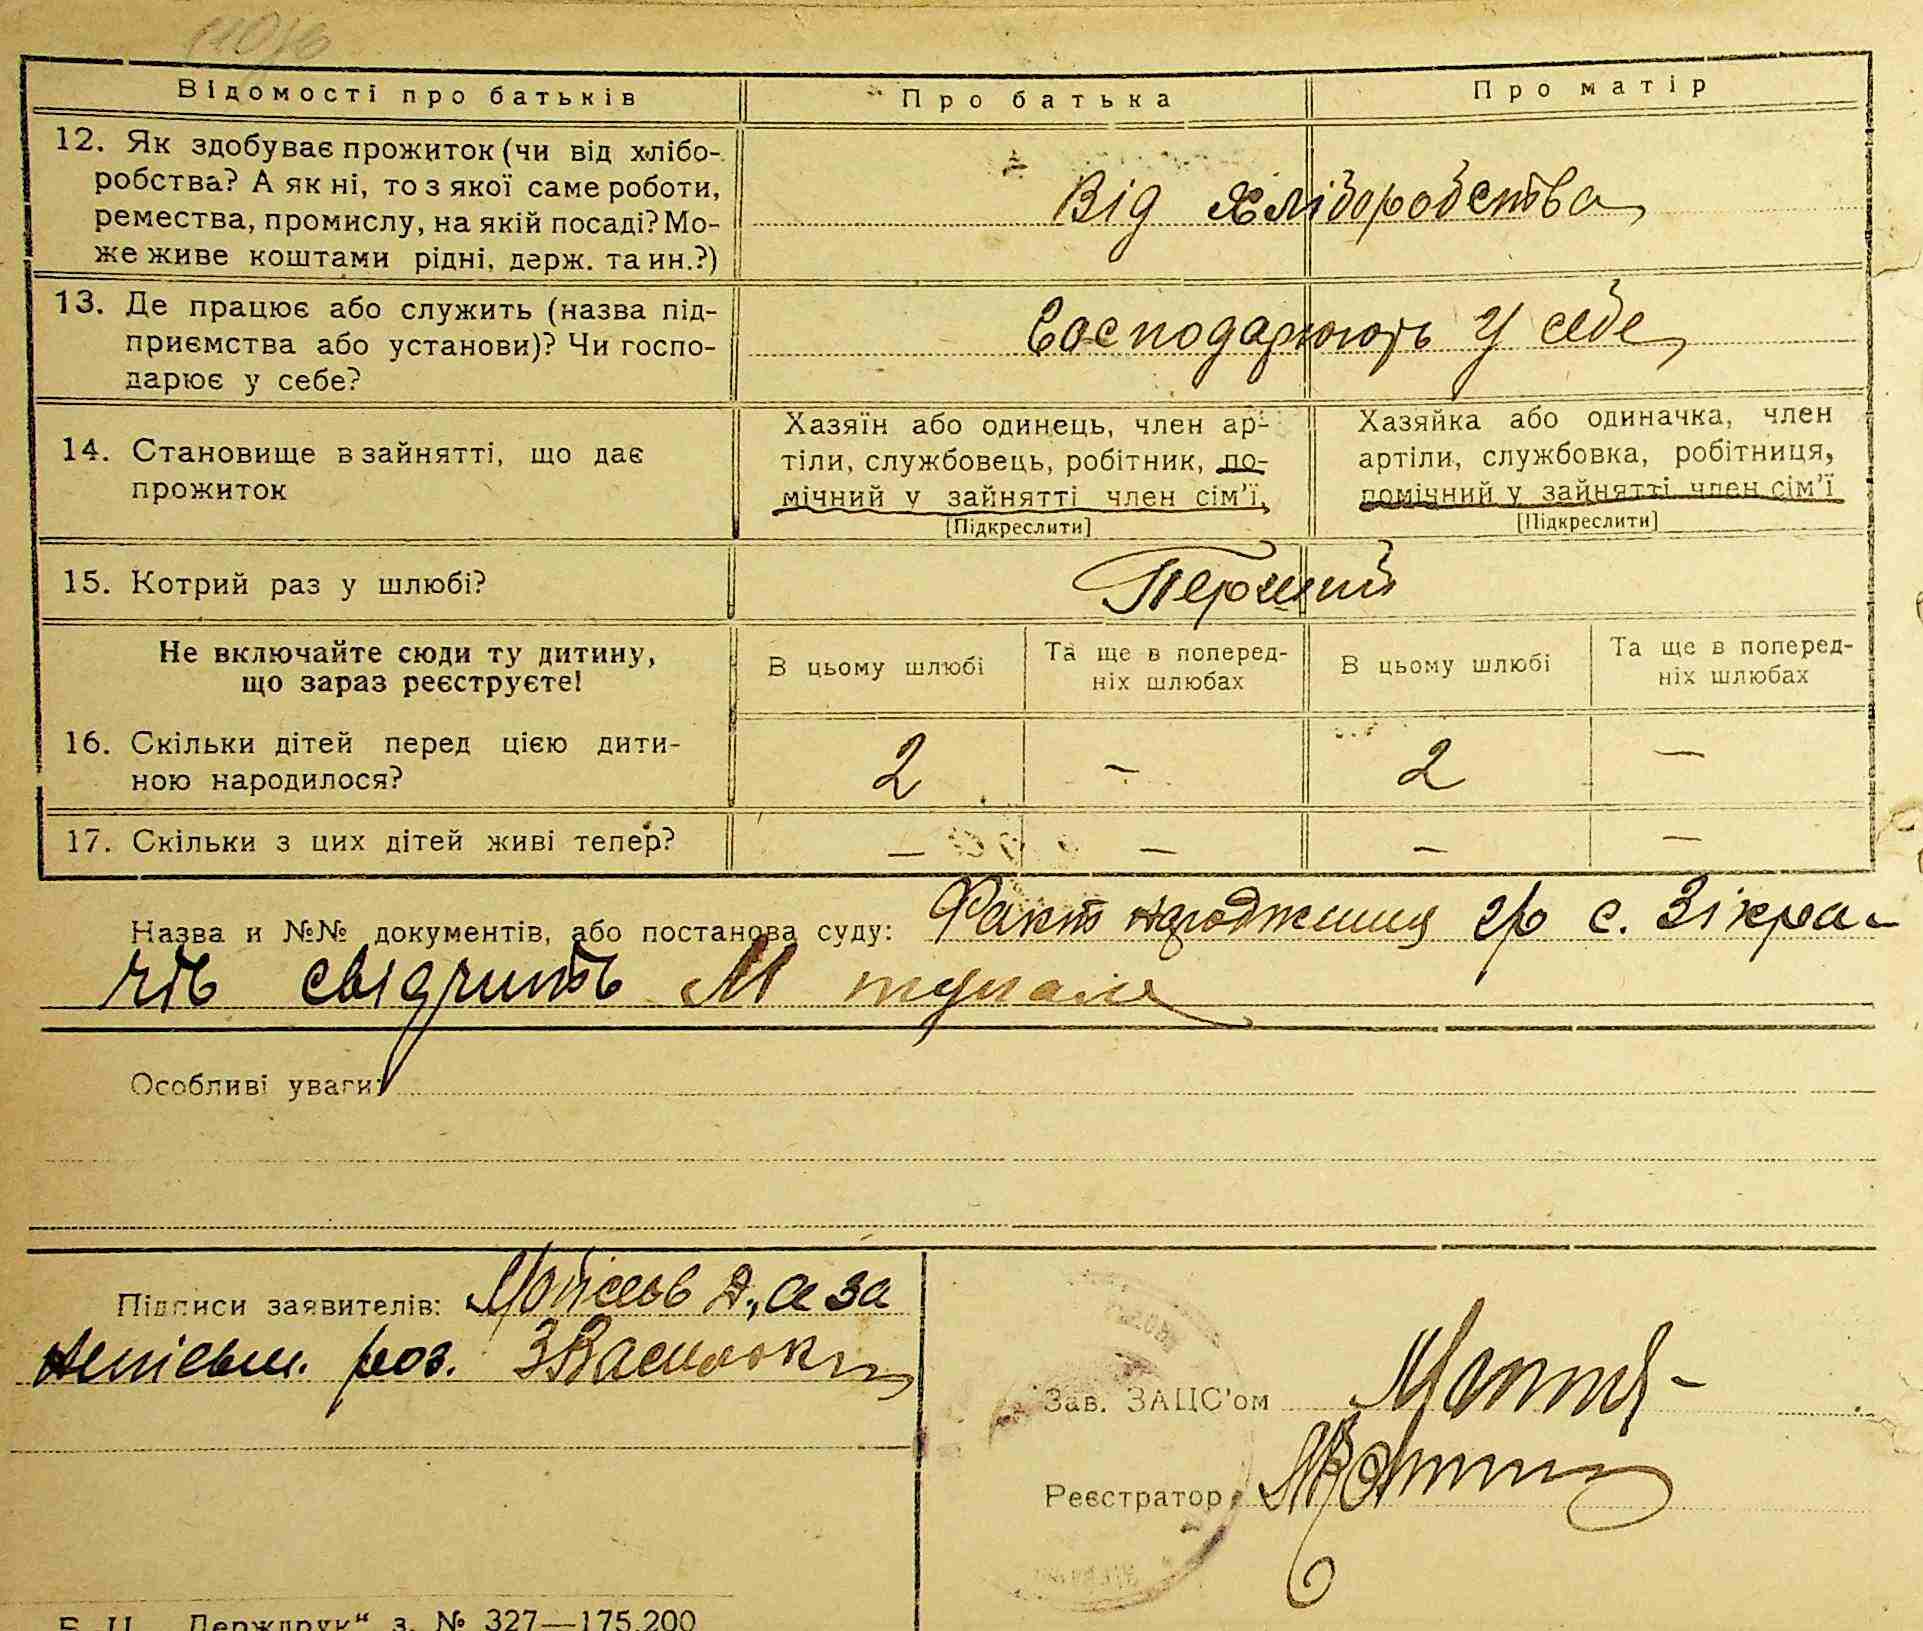 Відомості про батьків
Про батька
Про матір
12. Як здобуває прожиток (чи від хлібо-
робства? А як ні, то з якої саме роботи,
ремества, промислу, на якій посаді? Мо-
же живе коштами рідні, держ. та ин.?)
Від Хліборобства
13. Де працює або служить (назва під-
приємства або установи)? Чи госпо-
дарює у себе?
Господарюють у себе
14. Становище в зайнятті, що дає
прожиток
Хазяїн або одинець, член ар-
тіли, службовець, робітник, по-
мічний у зайнятті член сім'ї,
[Підкреслити]
Хазяйка або одиначка, член
артіли, службовка, робітниця,
помічний у зайнятті член сім'ї
[Підкреслити]
15. Котрий раз у шлюбі?
Перший
Не включайте сюди ту дитину,
що зараз реєструєте!
В цьому шлюбі
Та ще в поперед-
ніх шлюбах
В цьому шлюбі
Та ще в поперед-
ніх шлюбах
16. Скільки дітей перед цією дити-
ною народилося?
2 – 2 –
17. Скільки з цих дітей живі тепер?
– – – –
Назва и №№ документів, або постанова суду: Факт народження гр с. Зікра-
чів свідчить
Особливі уваги:
Підписи заявителів: Мойсеєв Д., а за
неписьм. роз. ЗВасилюк
Зав. ЗАЦС'ом
Реєстратор
Б. Ц. „Держдрук“ з. № 327—175.200